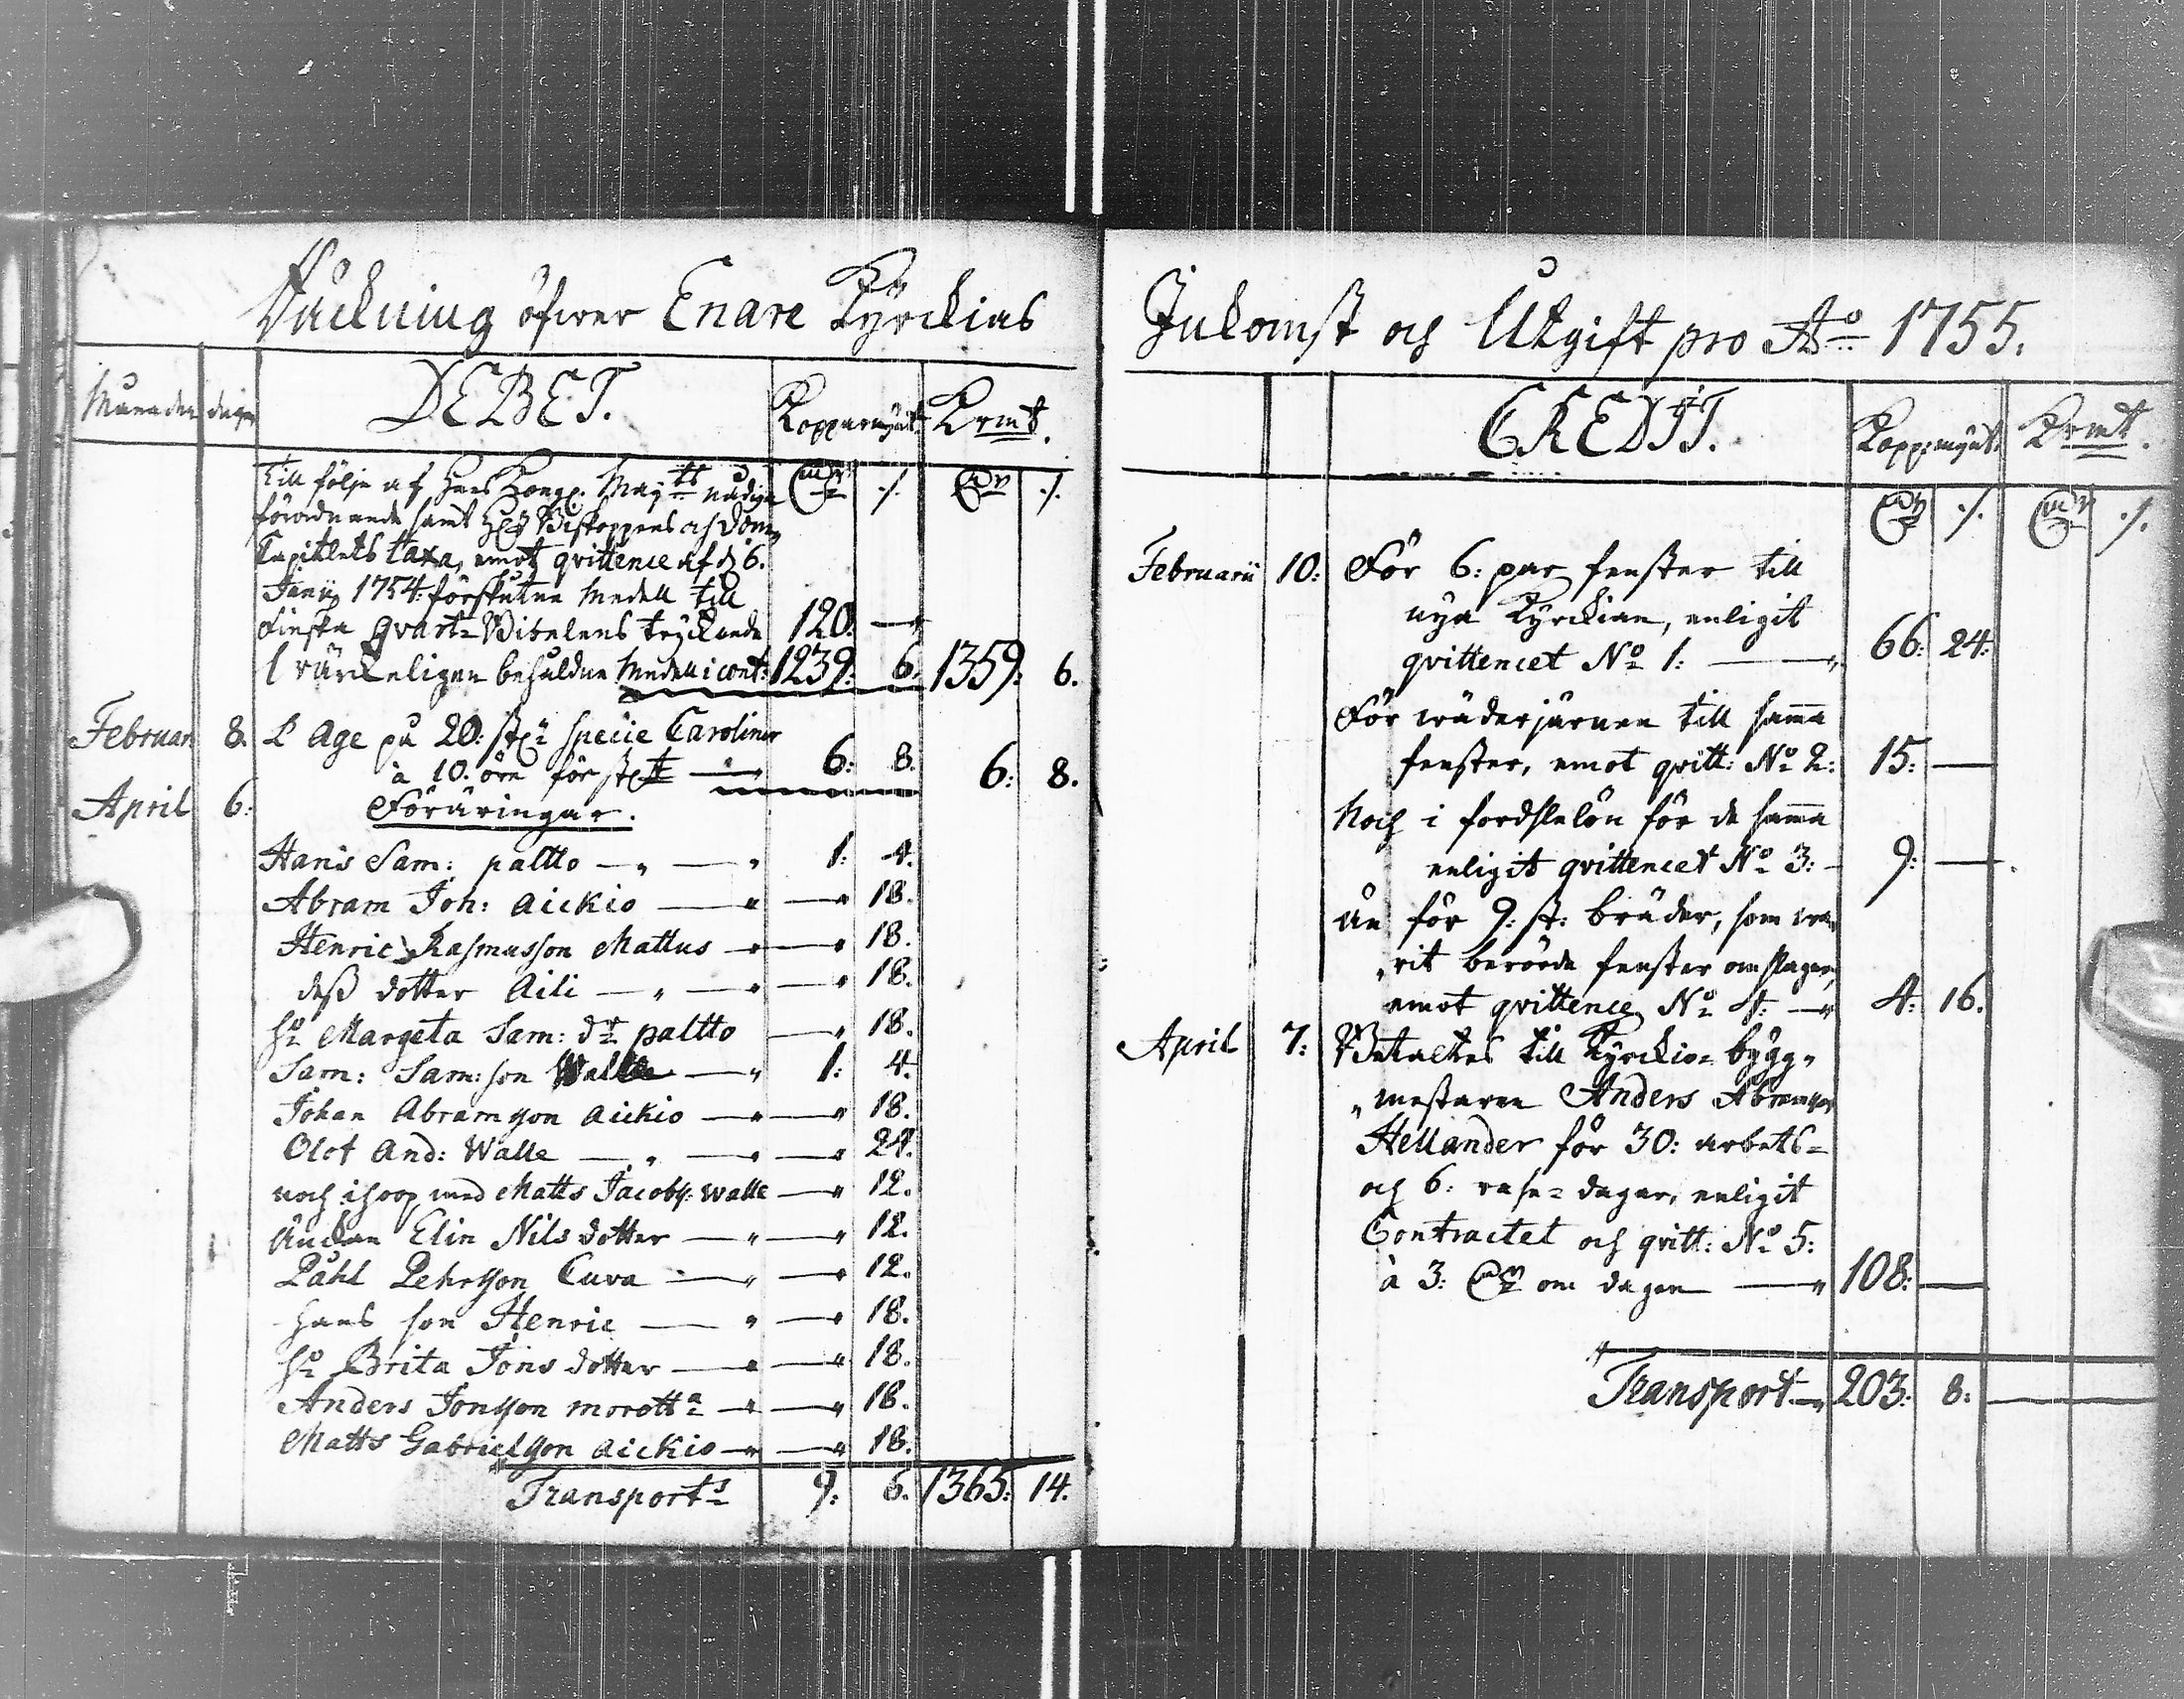 Räckning öfwer Enare Kyrckias
Månaden dagen DEBET. Kopparmynt. Krmt.
Till följe af Hans Kongl. Maytts nådiga
förordnande samt H Biskoppens och Dom„
Capitlets taxa, emot qvittence af d 6.
Janu 1754: förskutne medell till
Finska Qvart= Bibelens tryckande 120. —
I wärckeligen behåldne medell i cont: 1239: 6. 1359: 6.
Februar 8. L' Age på 20: st specie Caroliner
à 10. öre för st — „ 6: 8. 6: 8.
April 6: Föräringar.
Hans Sam: paltto — „ — „ 1: 4.
Abram Joh: aickio — „ — „ 18.
Henric Rasmusson Mattus — „ — „ 18.
dess dotter Aili — „ — „ — „ 18.
ho Margeta Sam: dr paltto — „ 18.
Sam: Sam:son Walle — „ 1: 4.
Johan Abramsson aickio — „ — „ 18.
Olof And: Walle — „ — „ — „ 24.
noch ihoop med Matts Jacobs: walle — „ 12.
Änckan Elin Nils dotter — „ — „ 12.
Påhl Pehrsson Cuva — „ — „ 12.
Hans son Henric — „ — „ 18.
ho Brita Jöns dotter — „ — „ 18.
Anders Jonsson morotta — „ — „ 18.
Matts Gabrielsson aickio — „ — „ 18.
Transportt 9: 6. 1365: 14.
Inkomst och Utgift pro Ao 1755.
CREDIT. Kopp:mynt. Krmt.
Februarii 10: För 6: par fenster till
nya Kyrckian, enligit
qvittencet No 1: — „ 66: 24:
För wäderjärnen till samma
fenster, emot qvitt: No 2: 15: —
Noch i fordslelön för de samma
enligit qvittencet No 3: — 9: —
än för 9: st: bräder, som wa„
„rit berörde fenster omslagen,
emot qvittence No 4: — „ 4: 16.
April 7: Betaltes till Kyrckio= bygg„
„mestaren Anders Abramsson
Hellander för 30: arbets=
och 6: rese= dagar, enligit
Contractet och qvitt: No 5:
à 3: om dagen — „ 108: —
Transport — „ 203: 8: —